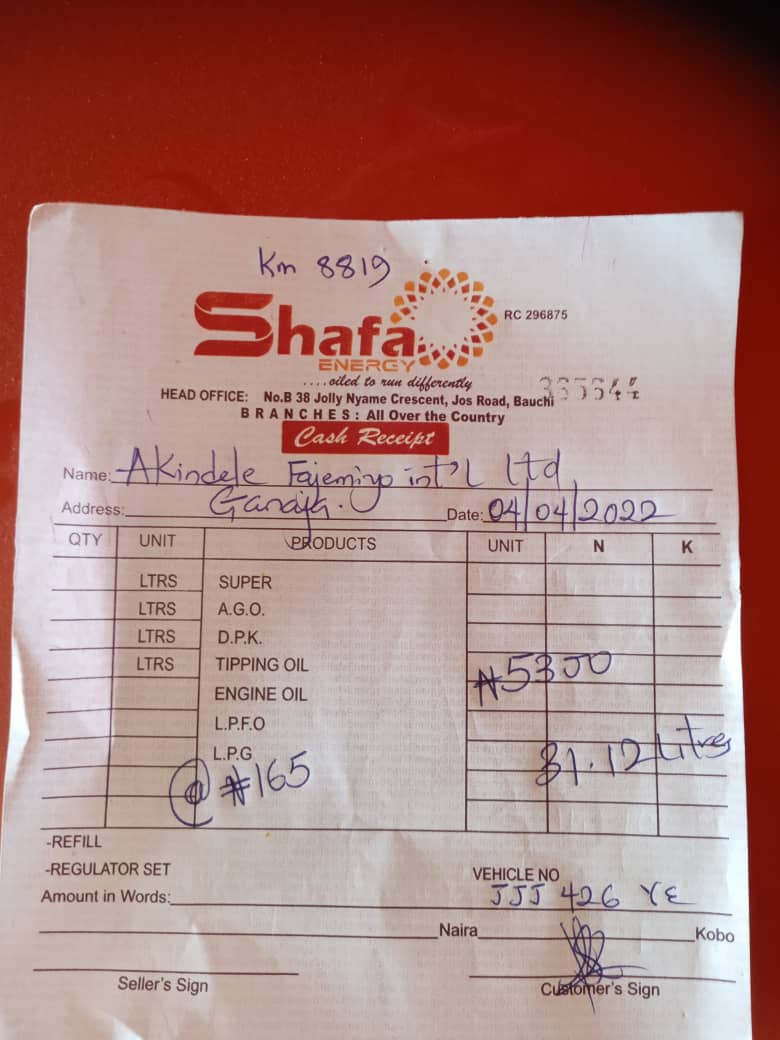 Km 8819
Shafa
ENERGY
RC 296875
....oiled to run differently
HEAD OFFICE: No.B 38 Jolly Nyame Crescent, Jos Road, Bauchi
BRANCHES: All Over the Country
Cash Receipt
Name: Akindele Fajemiyo int'l Ltd
Address: Ganaja. Date: 04/04/2022
QTY UNIT PRODUCTS UNIT N K
LTRS SUPER
LTRS A.G.O.
LTRS D.P.K.
LTRS TIPPING OIL
₦5300
ENGINE OIL
L.P.F.O
L.P.G 31.12 Litres
@ ₦165
-REFILL
-REGULATOR SET VEHICLE NO
JJJ 426 YE
Amount in Words:
Naira Kobo
Seller's Sign Customer's Sign